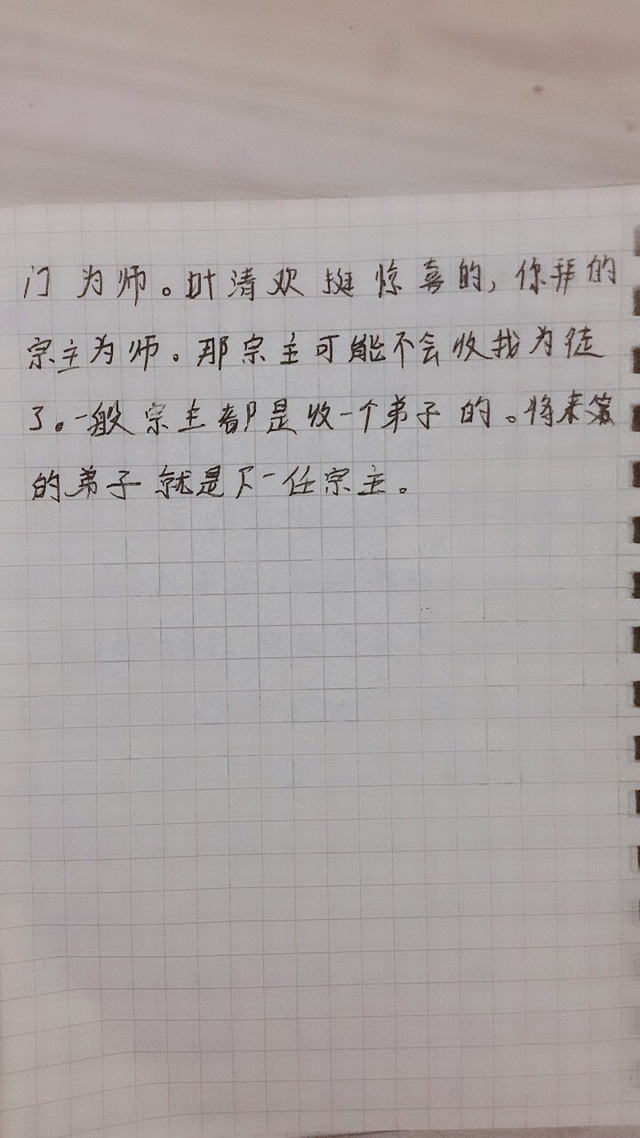 门为师。叶清欢挺惊喜的,你拜的
宗主为师。那宗主可能不会收我为徒
了。一般宗主都是收一个弟子的。将来
的弟子就是下一任宗主。